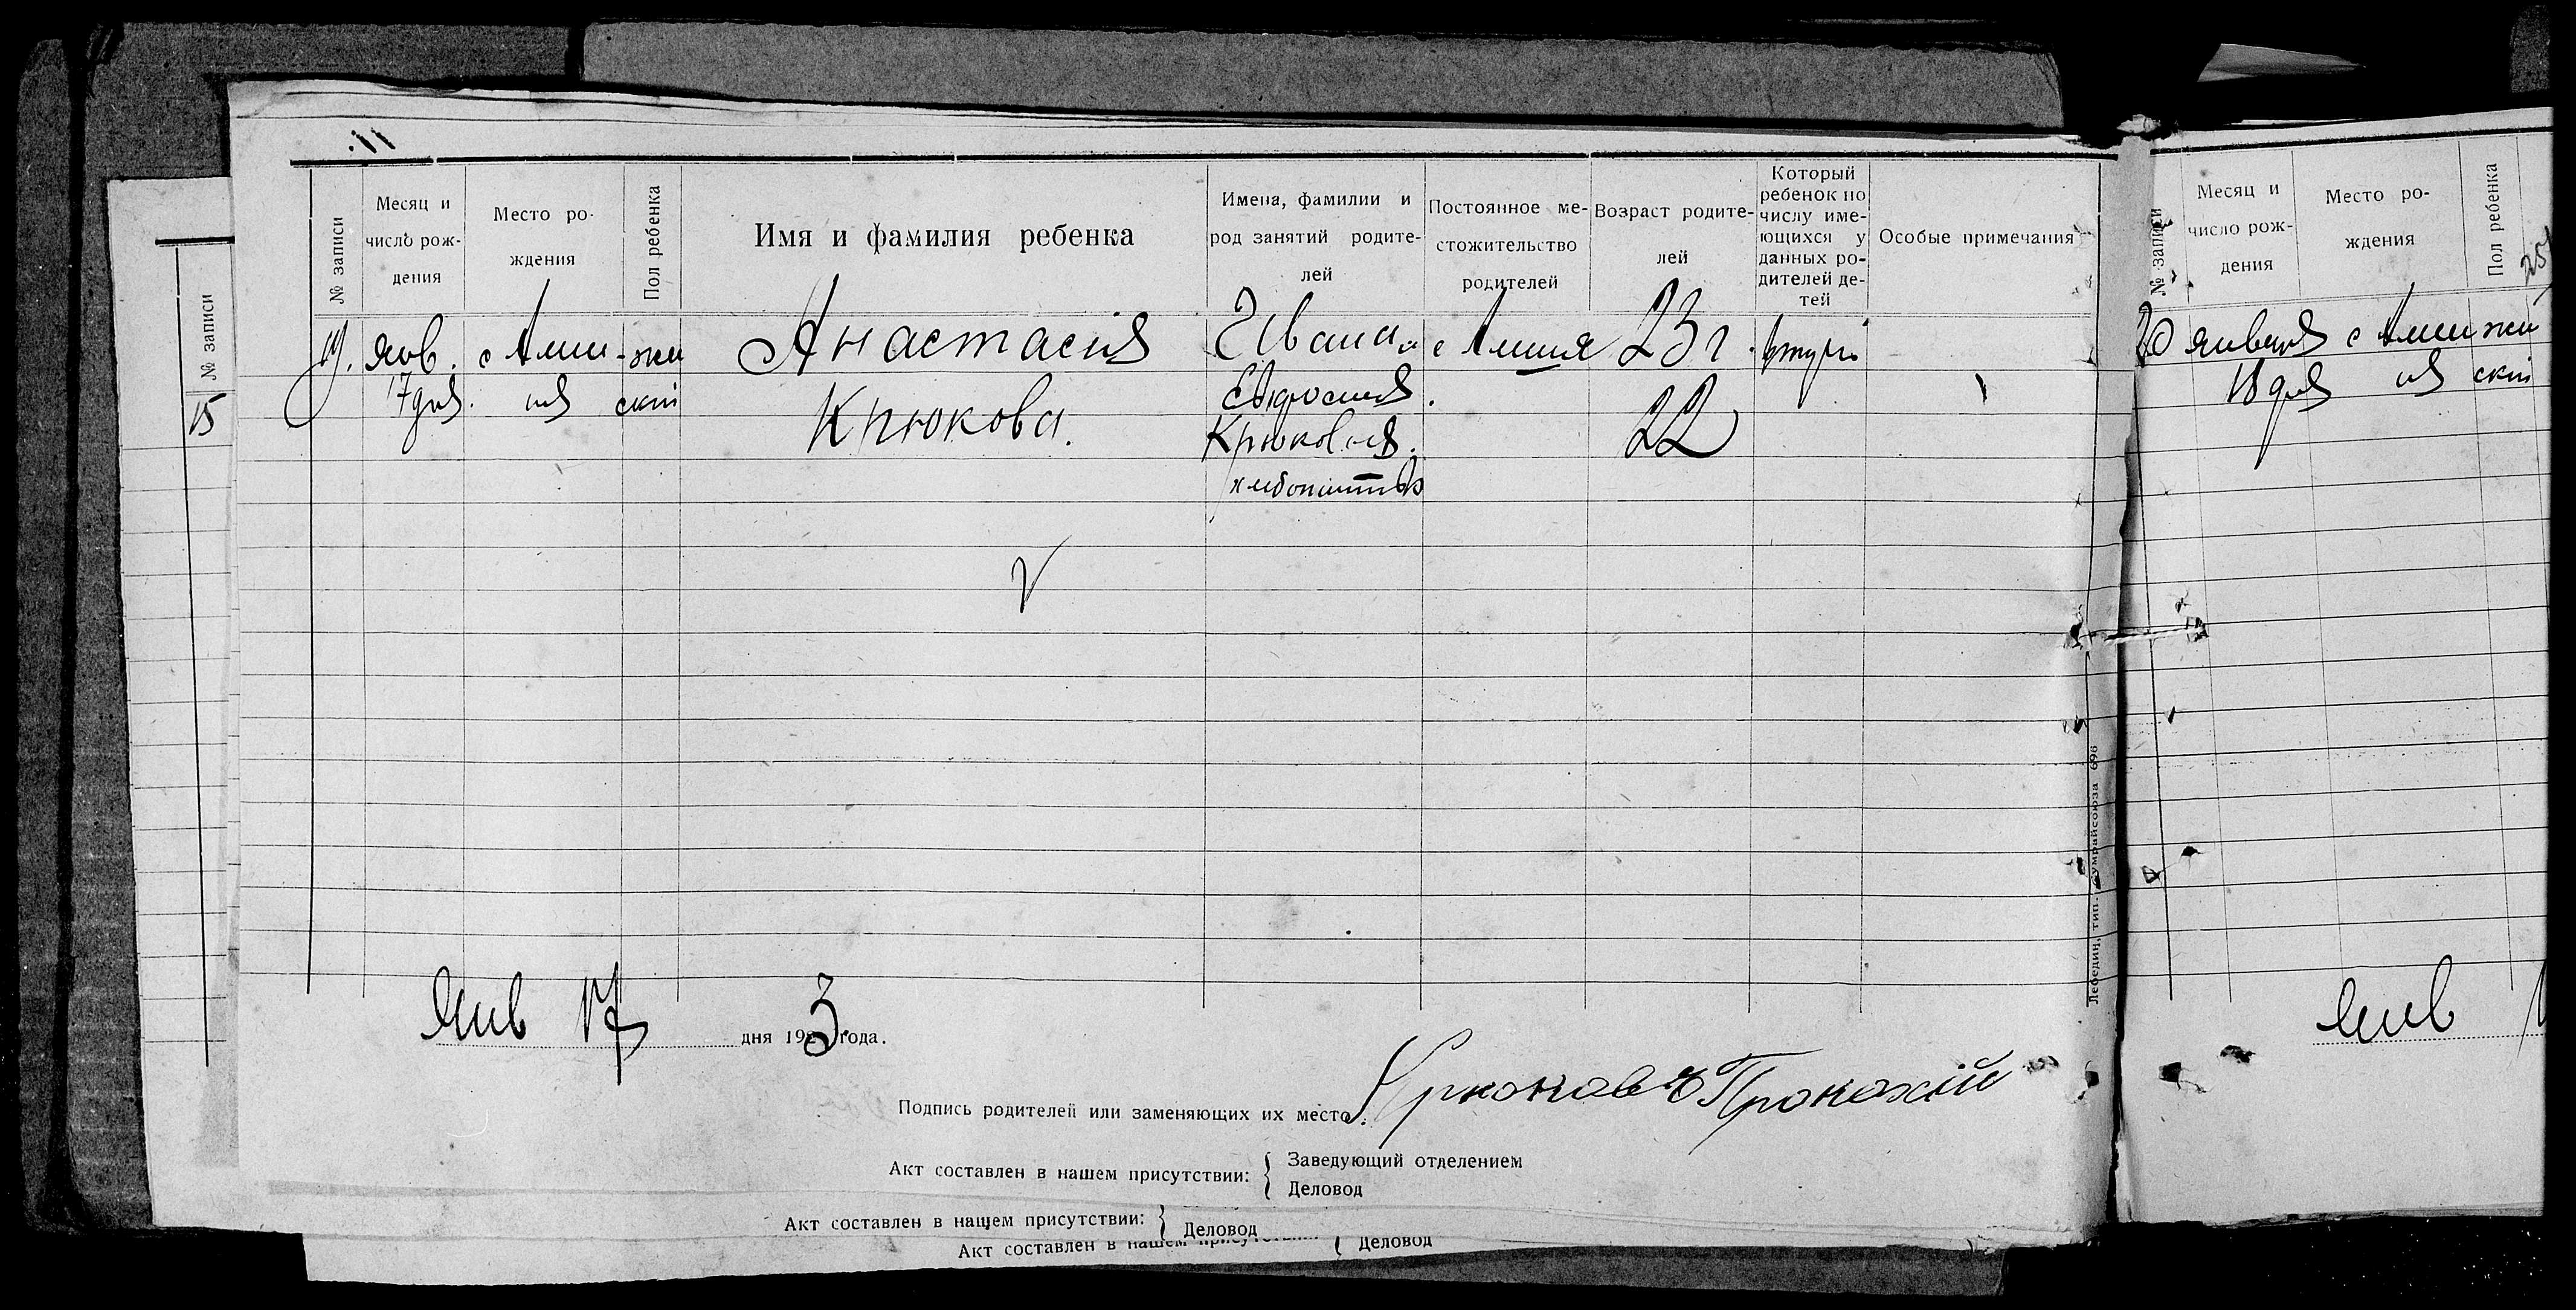 11.
№ записи
Месяц и число рождения
Место рождения
Пол ребенка
Имя и фамилия ребенка
Имена, фамилии и род занятий родителей
Постоянное местожительство родителей
Возраст родителей
Который ребенок по числу имеющихся у данных родителей детей
Особые примечания
19. янв. с Анастасия Ивана 23 г.
17 дня женский Крюкова. Евфросиния 22
Крюковыя.
V
Янв 17 дня 1923 года.
Подпись родителей или заменяющих их место
Крюковъ Прокохій
Акт составлен в нашем присутствии: Заведующий отделением
Деловод
Акт составлен в нашем присутствии: Деловод
Акт составлен в нашем присутствии: Деловод
Лебедин, тип. Сумрайсоюза 696
№ записи
15
№ записи
Месяц и число рождения
Место рождения
Пол ребенка
20 января с женский
18 дня
янв